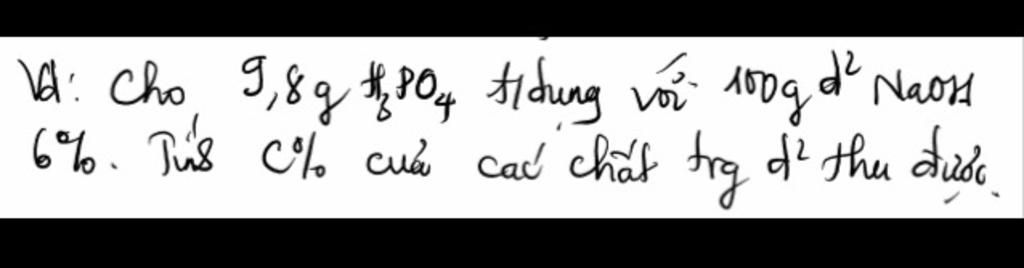 Vd: Cho 9,8g H₃PO₄ t/dụng với 100g d² NaOH
6%. Tính C% của các chất trg d² thu được.